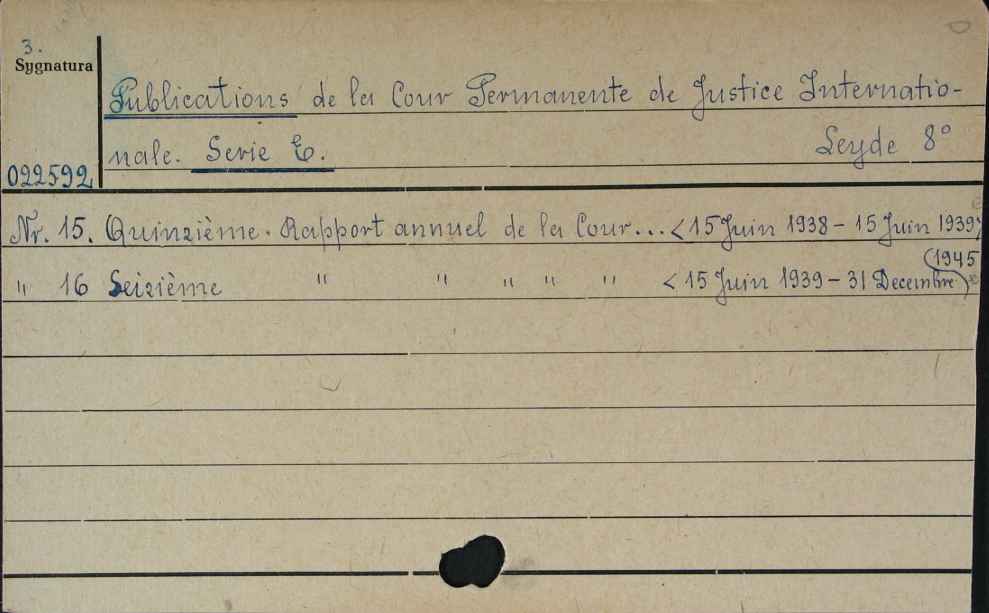 3.
Sygnatura
Publications de la Cour Permanente de Justice Internatio-
nale. Serie E. Leyde 8°
022592
Nr. 15. Quinzième. Rapport annuel de la Cour... <15 Juin 1938 - 15 Juin 1939>
(1945
" 16 Seizième " " " " " <15 Juin 1939 - 31 Decembre)